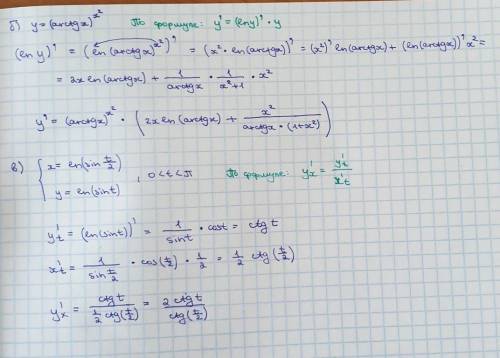 б) y = (arctgx)^x² По формуле: y' = (ln y)' · y
(ln y)' = (ln(arctgx)^x²)' = (x² · ln(arctgx))' = (x²)' ln(arctgx) + (ln(arctgx))' x² =
= 2x ln(arctgx) + 1/arctgx · 1/(x²+1) · x²
y' = (arctgx)^x² · (2x ln(arctgx) + x²/(arctgx · (1+x²)))
в) { x = ln(sin t/2) y = ln(sint) , 0<t<π По формуле: y'x = y't/x't
y't = (ln(sint))' = 1/sint · cost = ctg t
x't = 1/(sin t/2) · cos(t/2) · 1/2 = 1/2 ctg(t/2)
y'x = ctg t/(1/2 ctg(t/2)) = 2 ctg t/ctg(t/2)